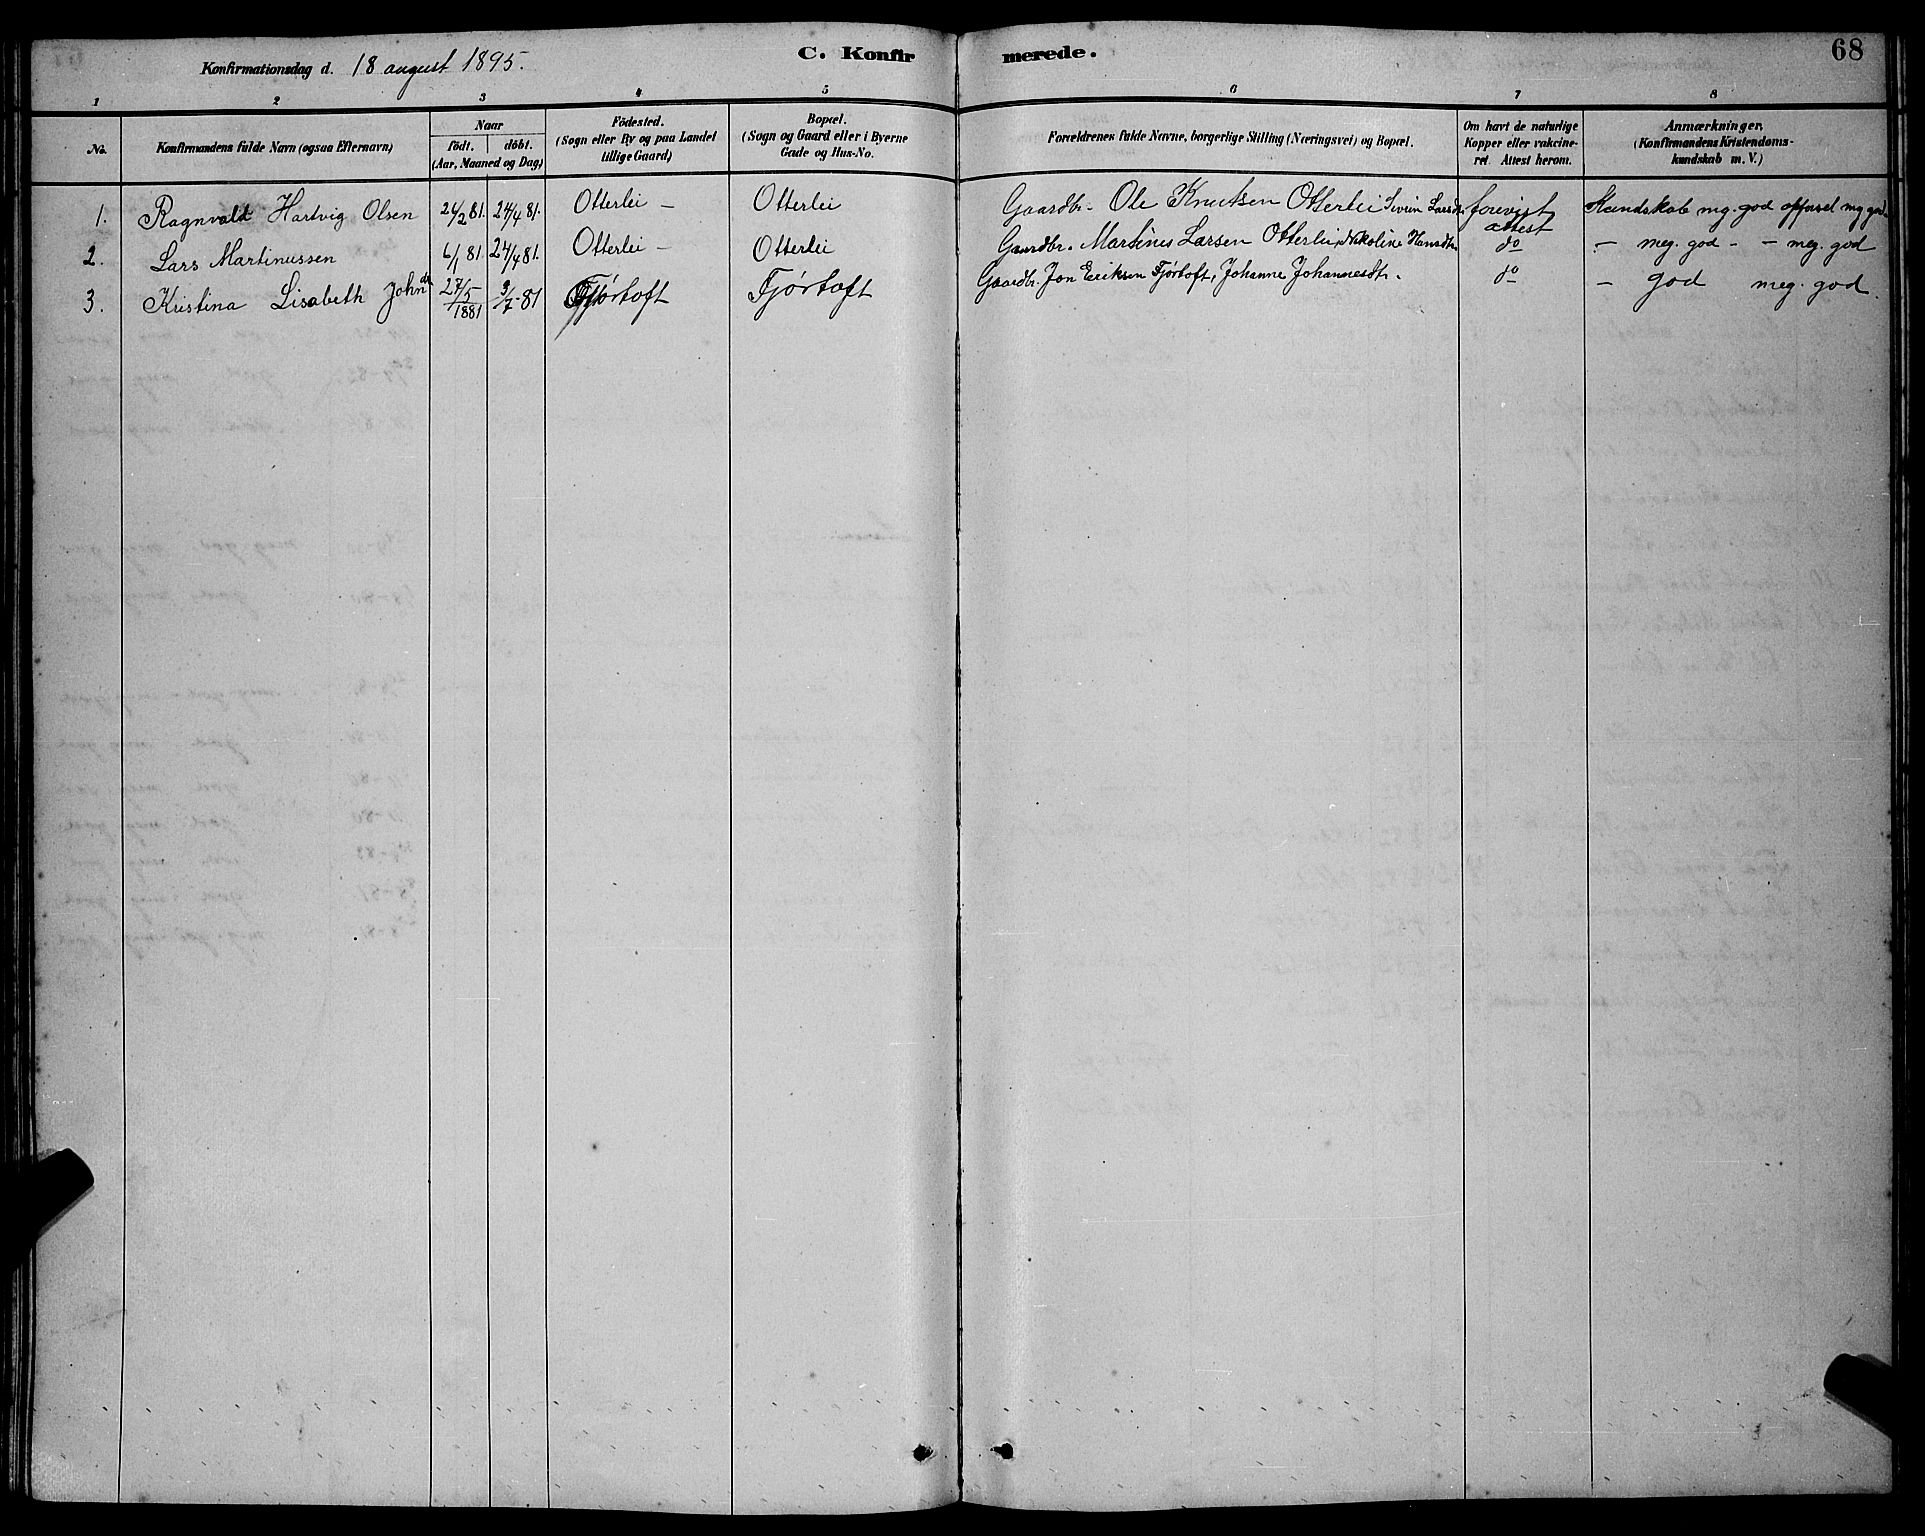 Konfirmationsdag d. 18 august 1895. C. Konfirmerede. 68
1 2 3 4 5 6 7 8
No. Konfirmandens fulde Navn (ogsaa Efternavn) Naar födt. döbt. (Aar, Maaned og Dag) Födested. (Sogn eller By og paa Landet tillige Gaard) Bopæl. (Sogn og Gaard eller i Byerne Gade og Hus-No. Forældrenes fulde Navne, borgerlige Stilling (Næringsvei) og Bopæl. Om havt de naturlige Kopper eller vakcineret. Attest herom. Anmærkninger. (Konfirmandens Kristendomskundskab m. V.)
1. Ragnvald Hartvig Olsen 24/2 81. 24/4 81. Otterlei – Otterlei Gaardbr. Ole Knutsen Otterlei Larsdtr. forevist attest Kundskab mg. god opførsel mg god
2. Lars Martinussen 6/1 81 24/4 81. Otterlei – Otterlei Gaardbr. Martinus Larsen Otterlei, Nikoline Hansdtr. do – meg. god – – meg. god
3. Kristina Lisabeth Johndr 27/5 1881 3/7-81 Fjørtoft Fjørtoft Gaardbr. Jon Eriksen Fjørtoft, Johanne Johannesdtr. do – god meg. god.